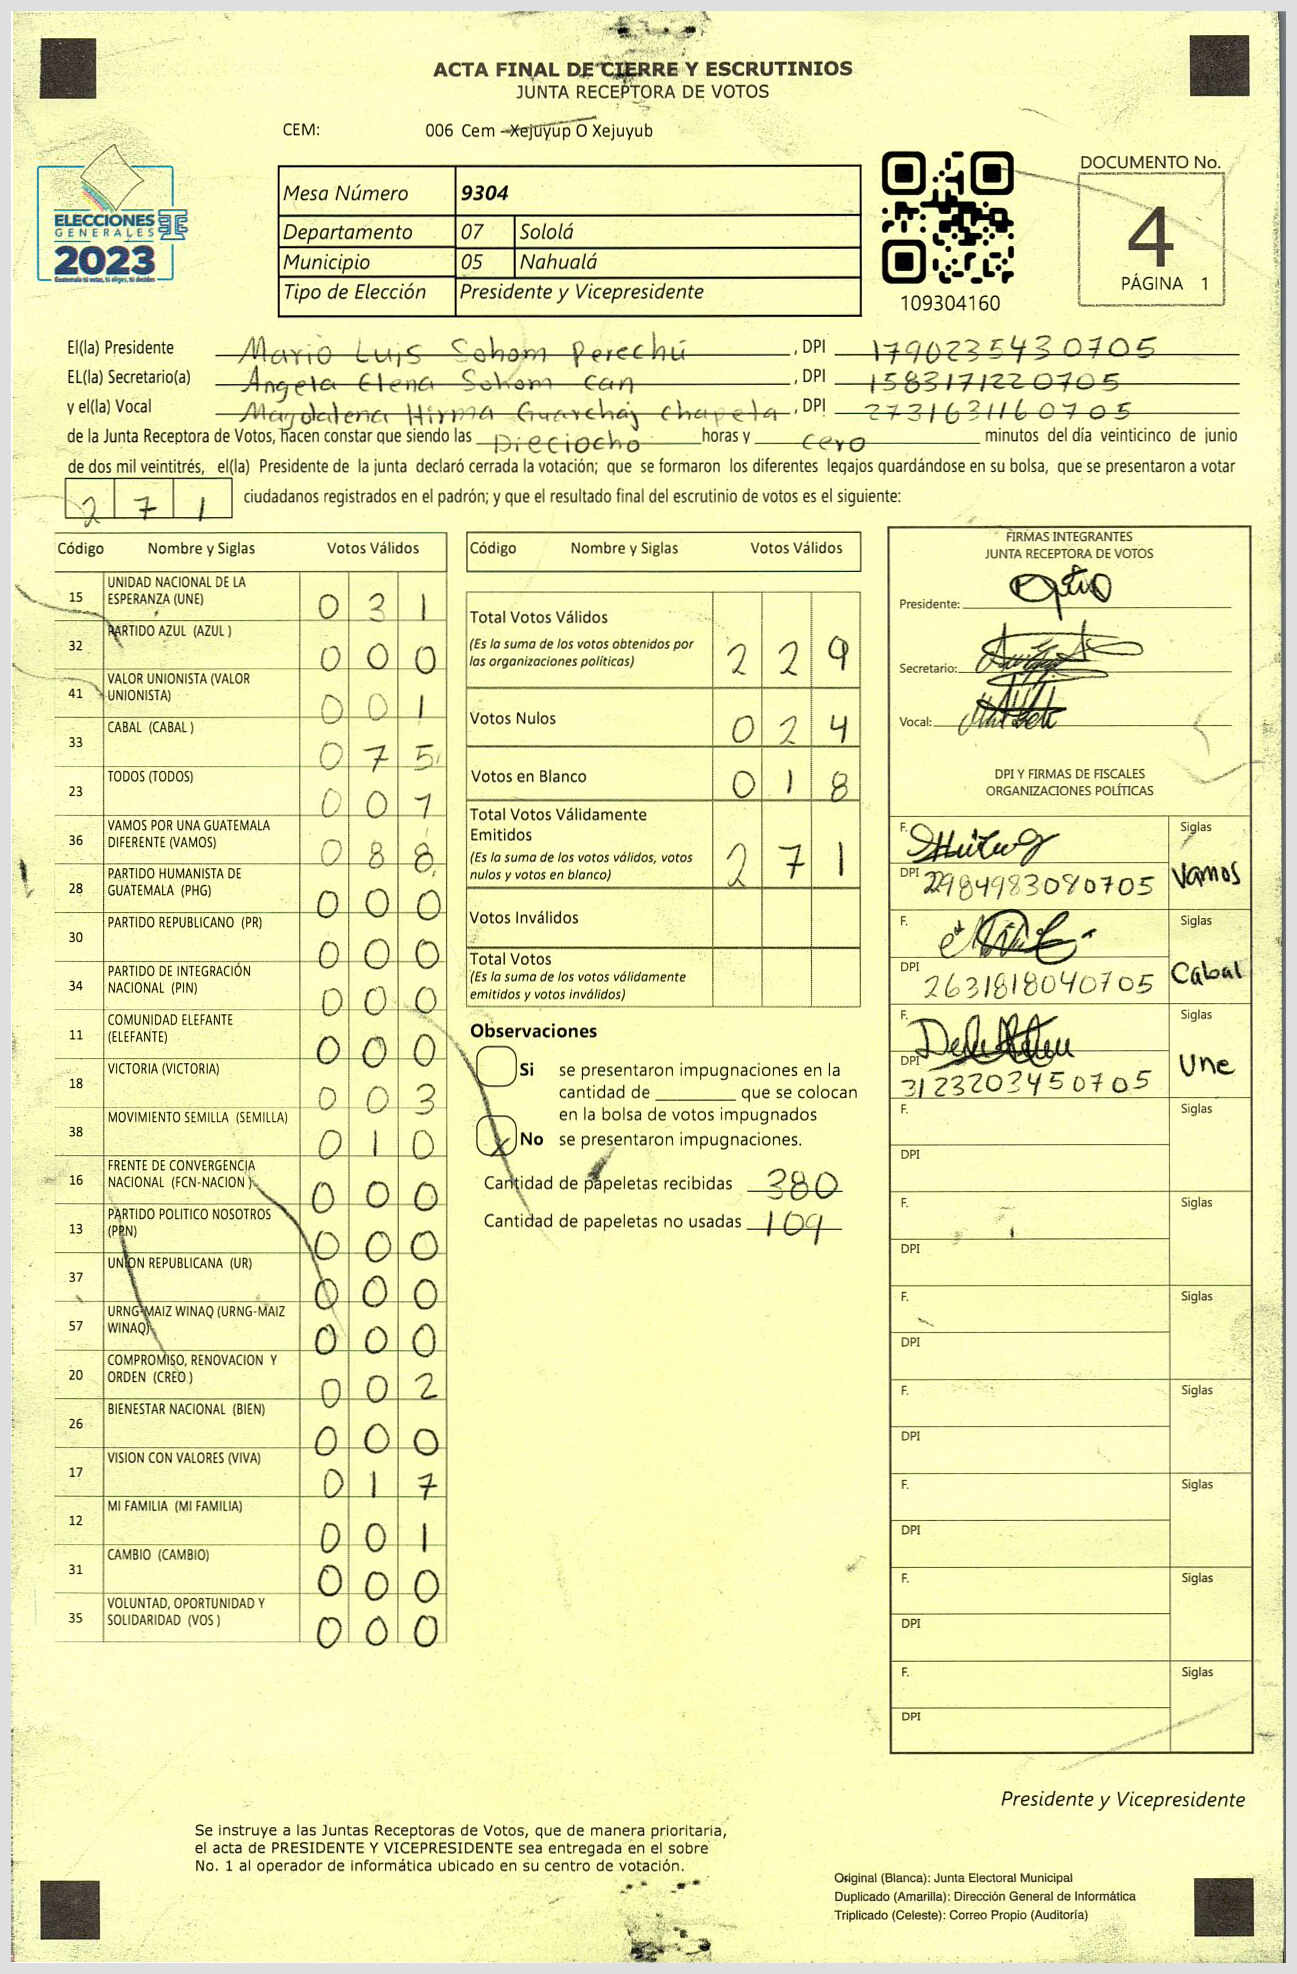 ACTA FINAL DE CIERRE Y ESCRUTINIOS
JUNTA RECEPTORA DE VOTOS
CEM: 006 Cem - Xejuyup O Xejuyub
ELECCIONES
GENERALES
2023
Guatemala tú votas, tú eliges, tú decides
Mesa Número 9304
Departamento 07 Sololá
Municipio 05 Nahualá
Tipo de Elección Presidente y Vicepresidente
109304160
DOCUMENTO No.
4
PÁGINA 1
El(la) Presidente Mario Luis Sohom Perechú , DPI 1790235430705
EL(la) Secretario(a) Angela Elena Sohom Can , DPI 1583171220705
y el(la) Vocal Magdalena Hirma Guarchaj chapeta , DPI 2731631160705
de la Junta Receptora de Votos, hacen constar que siendo las Dieciocho horas y cero minutos del día veinticinco de junio
de dos mil veintitrés, el(la) Presidente de la junta declaró cerrada la votación; que se formaron los diferentes legajos quardándose en su bolsa, que se presentaron a votar
2 7 1 ciudadanos registrados en el padrón; y que el resultado final del escrutinio de votos es el siguiente:
Código Nombre y Siglas Votos Válidos
15 UNIDAD NACIONAL DE LA
ESPERANZA (UNE) 0 3 1
32 PARTIDO AZUL (AZUL ) 0 0 0
41 VALOR UNIONISTA (VALOR
UNIONISTA) 0 0 1
33 CABAL (CABAL ) 0 7 5
23 TODOS (TODOS) 0 0 1
36 VAMOS POR UNA GUATEMALA
DIFERENTE (VAMOS) 0 8 8
28 PARTIDO HUMANISTA DE
GUATEMALA (PHG) 0 0 0
30 PARTIDO REPUBLICANO (PR) 0 0 0
34 PARTIDO DE INTEGRACIÓN
NACIONAL (PIN) 0 0 0
11 COMUNIDAD ELEFANTE
(ELEFANTE) 0 0 0
18 VICTORIA (VICTORIA) 0 0 3
38 MOVIMIENTO SEMILLA (SEMILLA) 0 1 0
16 FRENTE DE CONVERGENCIA
NACIONAL (FCN-NACION ) 0 0 0
13 PARTIDO POLITICO NOSOTROS
(PPN) 0 0 0
37 UNION REPUBLICANA (UR) 0 0 0
57 URNG-MAIZ WINAQ (URNG-MAIZ
WINAQ) 0 0 0
20 COMPROMISO, RENOVACION Y
ORDEN (CREO ) 0 0 2
26 BIENESTAR NACIONAL (BIEN) 0 0 0
17 VISION CON VALORES (VIVA) 0 1 7
12 MI FAMILIA (MI FAMILIA) 0 0 1
31 CAMBIO (CAMBIO) 0 0 0
35 VOLUNTAD, OPORTUNIDAD Y
SOLIDARIDAD (VOS ) 0 0 0
Código Nombre y Siglas Votos Válidos
Total Votos Válidos
(Es la suma de los votos obtenidos por
las organizaciones políticas) 2 2 9
Votos Nulos 0 2 4
Votos en Blanco 0 1 8
Total Votos Válidamente
Emitidos
(Es la suma de los votos válidos, votos
nulos y votos en blanco) 2 7 1
Votos Inválidos
Total Votos
(Es la suma de los votos válidamente
emitidos y votos inválidos)
Observaciones
Si se presentaron impugnaciones en la
cantidad de ________ que se colocan
en la bolsa de votos impugnados
X No se presentaron impugnaciones.
Cantidad de papeletas recibidas 380
Cantidad de papeletas no usadas 109
FIRMAS INTEGRANTES
JUNTA RECEPTORA DE VOTOS
Presidente:
Secretario:
Vocal:
DPI Y FIRMAS DE FISCALES
ORGANIZACIONES POLÍTICAS
F. Siglas
DPI 2984983080705 Vamos
F. Siglas
DPI 2631818040705 Cabal
F. Siglas
DPI 3123203450705 Une
F. Siglas
DPI
F. Siglas
DPI
F. Siglas
DPI
F. Siglas
DPI
F. Siglas
DPI
F. Siglas
DPI
F. Siglas
DPI
Presidente y Vicepresidente
Se instruye a las Juntas Receptoras de Votos, que de manera prioritaria,
el acta de PRESIDENTE Y VICEPRESIDENTE sea entregada en el sobre
No. 1 al operador de informática ubicado en su centro de votación.
Original (Blanca): Junta Electoral Municipal
Duplicado (Amarilla): Dirección General de Informática
Triplicado (Celeste): Correo Propio (Auditoría)